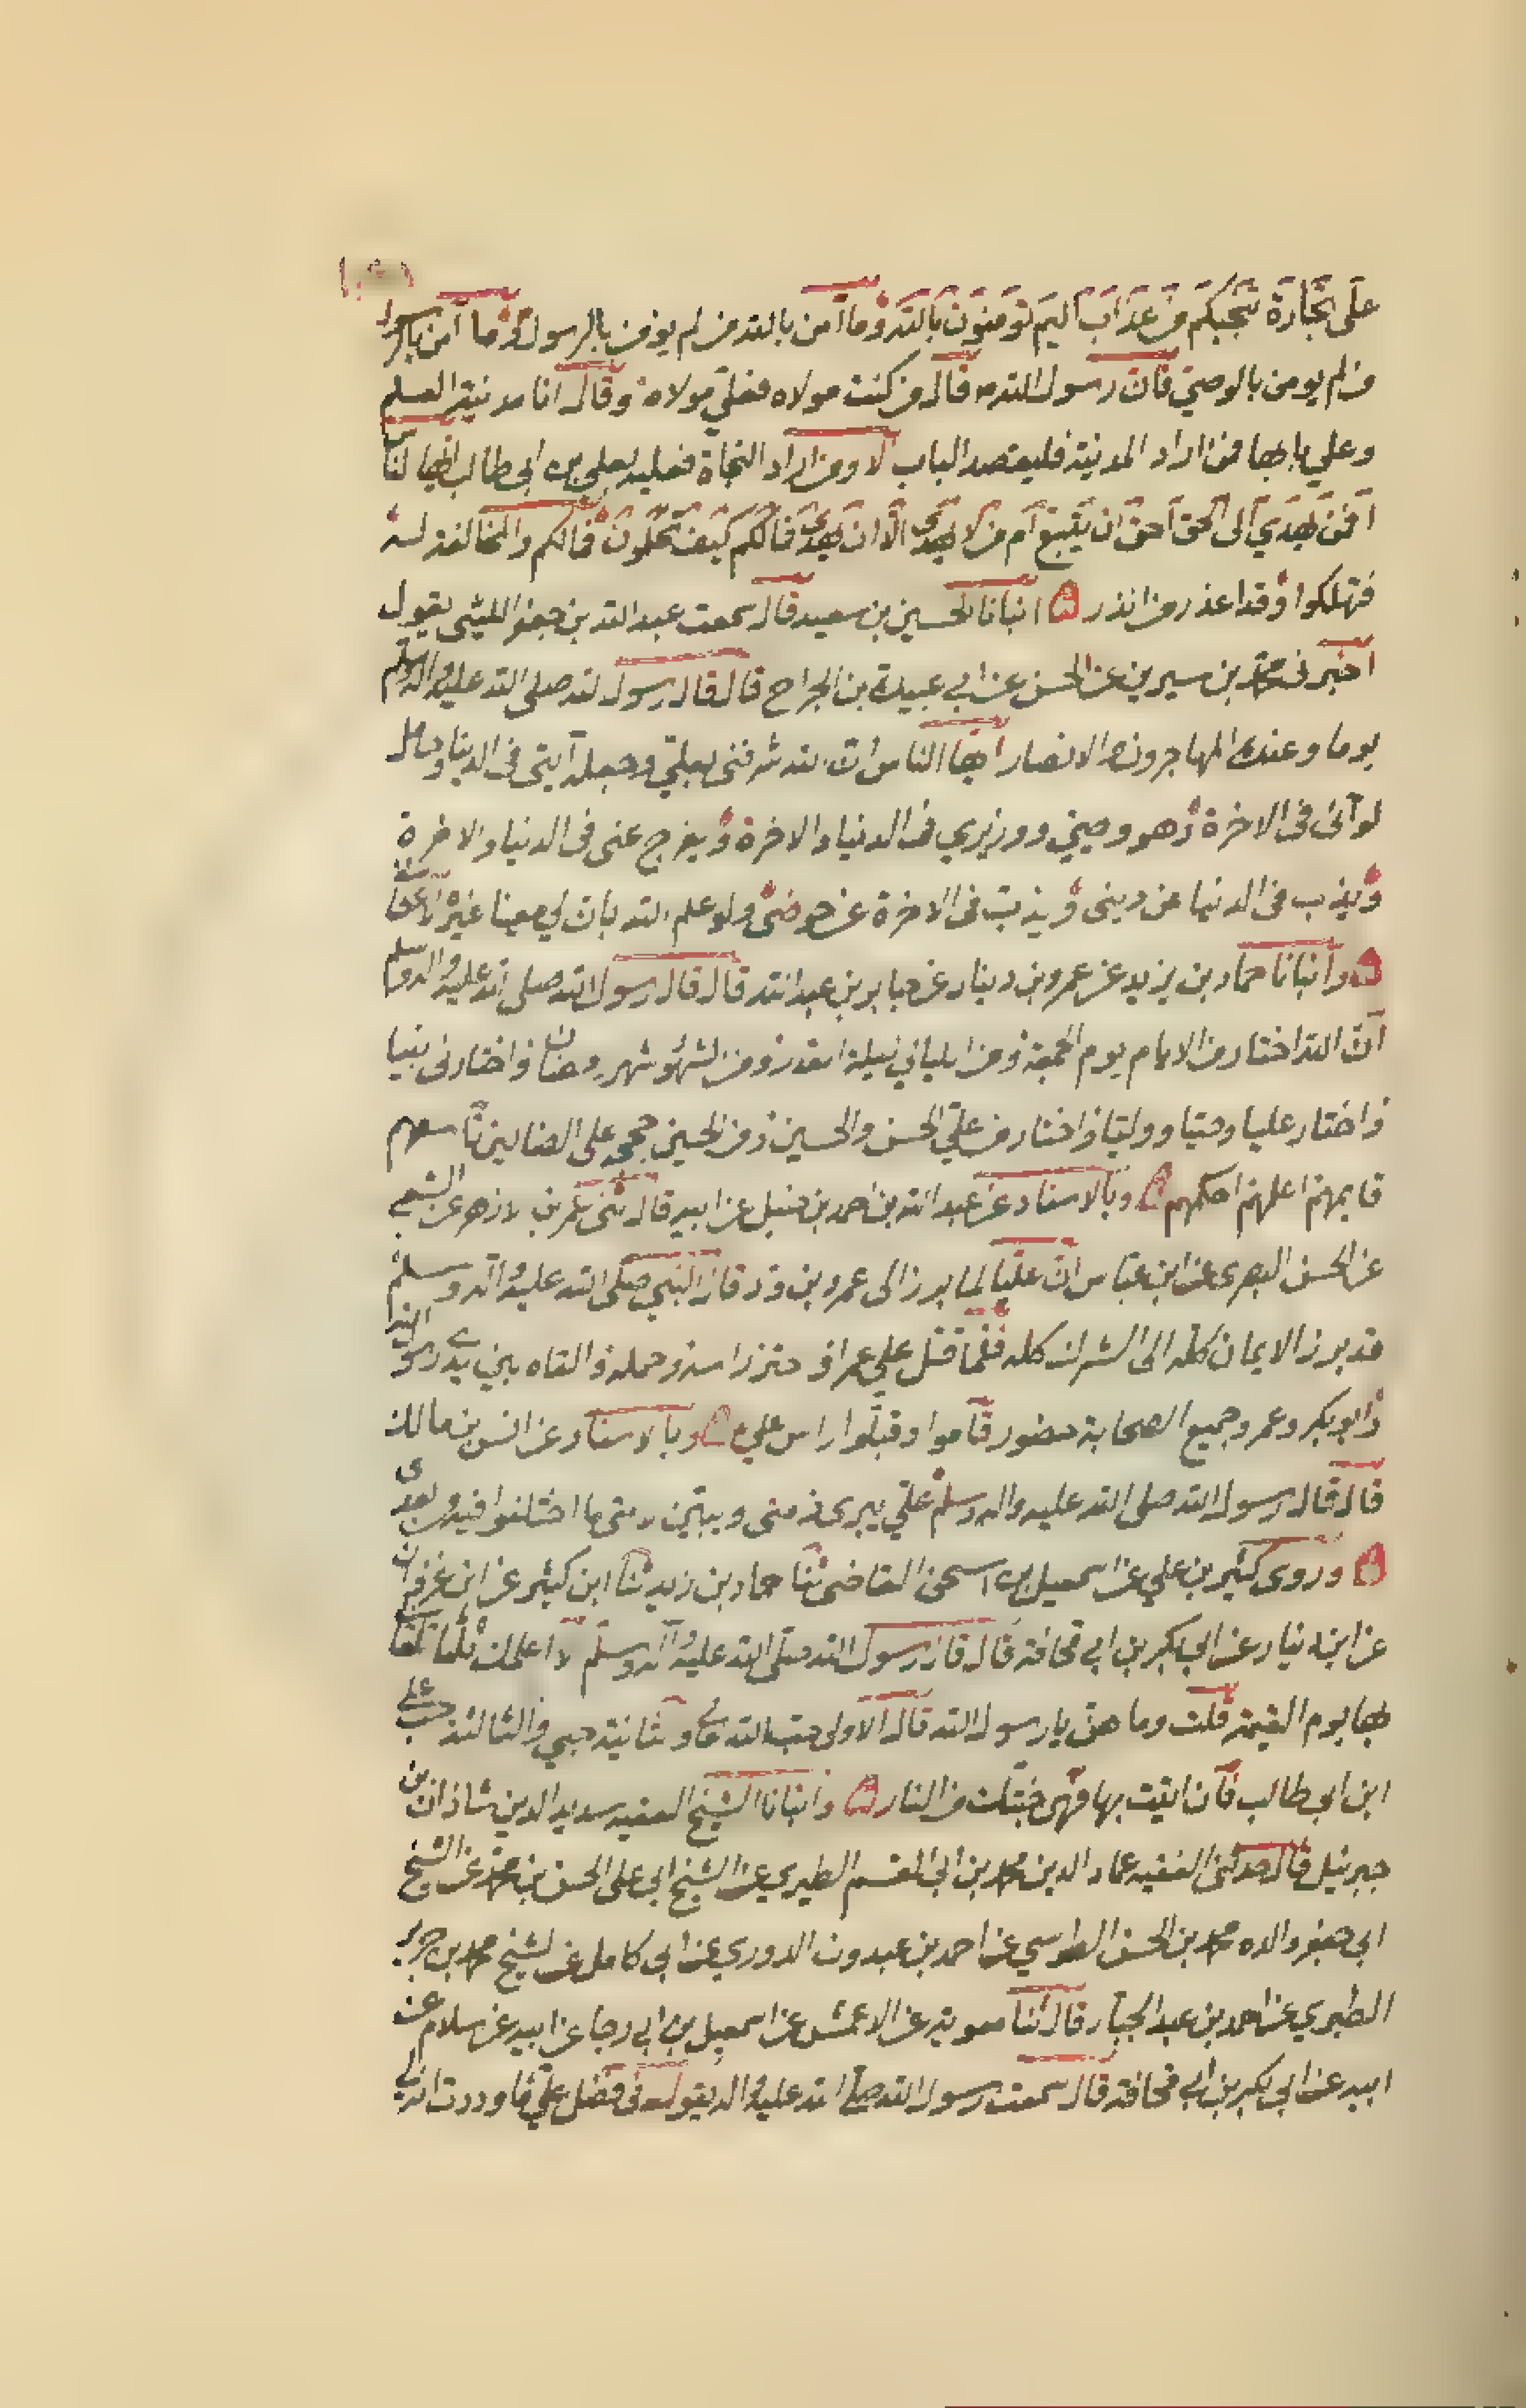 على تجارة تنجيكم من عذاب اليم تؤمنون بالله وما امن بالله من لم يومن بالرسول وما امن بالرسول
من لم يومن بالوصي فان رسول الله ص قال من كنت مولاه فعلي مولاه وقال انا مدينة العلم
وعلي بابها فمن اراد المدينة فليقصد الباب الا ومن اراد النجاة فعليه بعلي بن ابي طالب ايها الناس
افمن يهدي الى الحق احق ان يتبع ام من لا يهدى الا ان يهدى فمالكم كيف تحكمون فمالكم والمخالفة له
فتهلكوا وقد اعذر من انذر انبانا الحسين بن سعيد قال سمعت عبد الله بن جعفر الليثي يقول
اخبرني محمد بن سيرين عن الحسن عن ابي عبيدة بن الجراح قال قال رسول الله صلى الله عليه واله وسلم
يوما وعنده المهاجرون والانصار ايها الناس ان الله شرفنى بعلي وجعله آيتى فى الدنيا وحامل
لوآئى فى الاخرة وهو وصيي ووزيري فى الدنيا والاخرة ويفرج عنى فى الدنيا والاخرة
ويذب فى الدنيا عن دينى ويذب فى الاخرة عن حوضى ولو علم الله بان لي معينا غيره
وانبانا حماد بن يزيد عن عمرو بن دينار عن جابر بن عبد الله قال قال رسول الله صلى الله عليه واله وسلم
ان الله اختار من الايام يوم الجمعة ومن الليالي ليلة القدر ومن الشهور شهر رمضان واختارنى نبيا
واختار عليا وصيا ووليا واختار من علي الحسن والحسين ومن الحسين حججه على العالمين تاسعهم
قايمهم اعلمهم احكمهم وبالاسناد عن عبد الله بن احمد بن حنبل عن ابيه قال ثنى بن الازهر عن الشعبي
عن الحسن البصرى عن ابن عباس ان عليا لما برز الى عمرو بن ود قال النبي صلى الله عليه وآله وسلم
قد برز الايمان كله الى الشرك كله فلما قتل علي عمرا و حتز راسه وحمله والقاه بين يدى رسول الله
وابو بكر وعمر وجميع الصحابة حضور قاموا وقبلوا راس علي ع وبالاسناد عن انس بن مالك
قال قال رسول الله صلى الله عليه واله وسلم علي يبرى ذمتى ويبين لامتى ما اختلفوا فيه بعدى
وروى كثير بن علي عن اسمعيل بن اسحق القاضى ثنا حماد بن زيد ثنا ابن كثير عن ابن غزوان
عن ابن دينار عن ابي بكر بن ابي قحافة قال قال رسول الله صلى الله عليه وآله وسلم لا اعلمك
بها يوم القيمة قلت وما هى يا رسول الله قال الاولى حب الله والثانية حبي والثالثة حب على
ابن ابي طالب فان اتيت بها فهى جنتك من النار وانبانا الشيخ الفقيه سديد الدين شاذان بن
جبرئيل قال حدثنى الفقيه عماد الدين محمد بن ابي القسم الطبري عن الشيخ ابي على الحسن بن محمد عن الشيخ
ابي جعفر والده محمد بن الحسن الطوسي عن احمد بن عبدون الدوري عن ابي كامل عن الشيخ محمد بن جرير
الطبري عن احمد بن عبد الجبار قال ثنا معوية عن الاعمش عن اسمعيل بن ابي رجا عن ابيه عن سلام عن
ابيه عن ابي بكر بن ابي قحافة قال سمعت رسول الله صلى الله عليه واله يقول فى فضل علي ما وددت